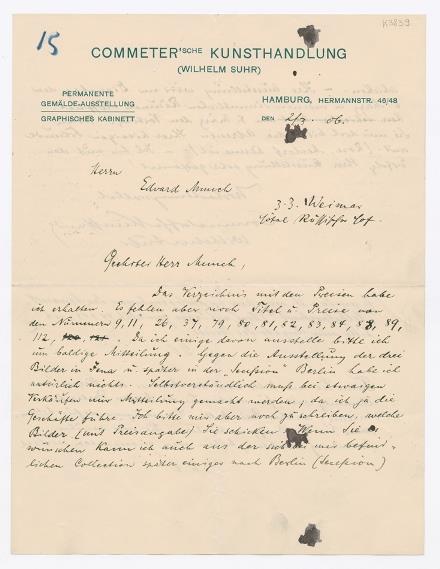 15
K3839
COMMETER'SCHE KUNSTHANDLUNG
(WILHELM SUHR)
PERMANENTE
GEMÄLDE-AUSSTELLUNG
GRAPHISCHES KABINETT
HAMBURG, HERMANNSTR. 46/48
DEN 2/3. 06.
Herrn
Edvard Munch
z. Z. Weimar
Hôtel Russischer Hof.
Geehrter Herr Munch,
Das Verzeichnis mit den Preisen habe
ich erhalten. Es fehlen aber noch Titel u. Preise von
den Nummern 9, 11, 26, 37, 79, 80, 81, 82, 83, 84, 89,
112, . Da ich einige davon ausstelle bitte ich
um baldige Mitteilung. Gegen die Ausstellung der drei
Bilder in Jena u. später in der "Secession" Berlin habe ich
natürlich nichts. Selbstverständlich muß bei etwaigen
Verkäufen mir Mitteilung gemacht werden, da ich ja die
Geschäfte führe. Ich bitte mir aber noch zu schreiben, welche
Bilder (mit Preisangabe) Sie schicken. Wenn Sie
wünschen kann ich auch aus der bei mir befind-
lichen Collection später einiges nach Berlin (Secession)